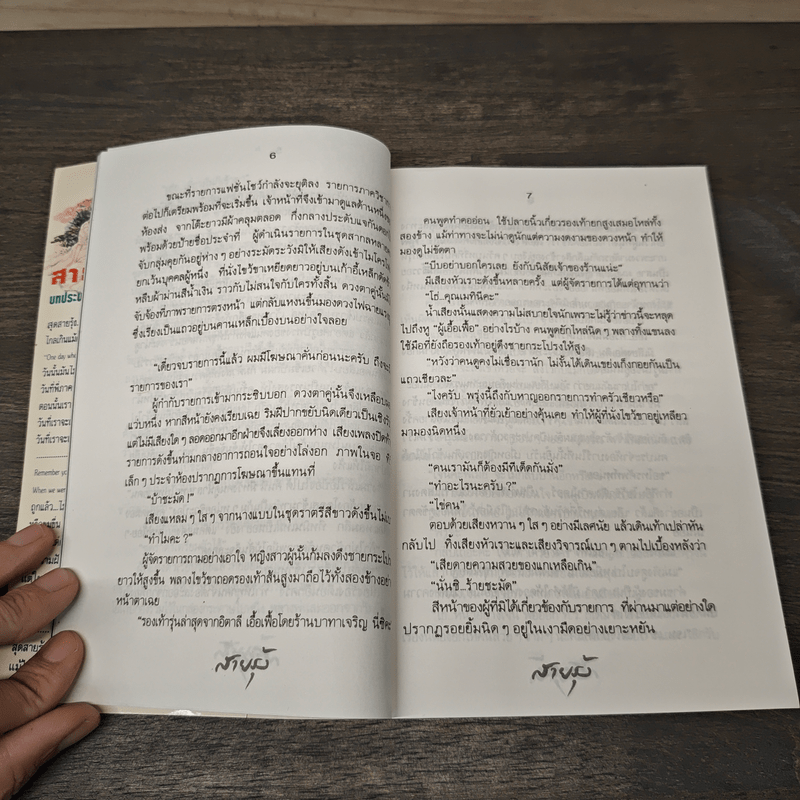 สา
บทประ
สุดสายรุ้ง
ไกลเกินแม้
"One day wh
วันนั้นมันไ
วันที่พี่ภาค
ตอนนั้นเรา
วันที่เราจะ
วันที่เราจะ
Remember yo
When we wer
ถูกแล้ว...โร
สุดสายรุ้
แม้ไ
6
ขณะที่รายการแฟชั่นโชว์กำลังจะยุติลง รายการภาควิชาก
ต่อไปก็เตรียมพร้อมที่จะเริ่มขึ้น เจ้าหน้าที่จึงเข้ามาดูแลด้านหนึ่งข
ห้องส่ง จากโต๊ะยาวมีผ้าคลุมตลอด กึ่งกลางประดับแจกันดอก
พร้อมด้วยป้ายชื่อประจำที่ ผู้ดำเนินรายการในชุดสากลหลาย
จับกลุ่มคุยกันอยู่ห่าง ๆ อย่างระมัดระวังมิให้เสียงดังเข้าไมโครโ
ยกเว้นบุคคลผู้หนึ่ง ที่นั่งไขว้ขาเหยียดยาวอยู่บนเก้าอี้เหล็กดัด
หลืบผ้าม่านสีน้ำเงิน ราวกับไม่สนใจกับใครทั้งสิ้น ดวงตาคู่นั้นมิ
จับจ้องที่ภาพรายการตรงหน้า แต่กลับแหงนขึ้นมองดวงไฟฉายแรง
ซึ่งเรียงเป็นแถวอยู่บนคานเหล็กเบื้องบนอย่างใจลอย
"เดี๋ยวจบรายการนี้แล้ว ผมมีโฆษณาคั่นก่อนนะครับ ถึงจะ
รายการของเรา"
ผู้กำกับรายการเข้ามากระซิบบอก ดวงตาคู่นั้นจึงเหลือบม
แวบหนึ่ง หากสีหน้ายังคงเรียบเฉย ริมฝีปากขยับนิดเดียวเป็นเชิงรั
แต่ไม่มีเสียงใด ๆ ลอดออกมาอีกฝ่ายจึงเลี่ยงออกห่าง เสียงเพลงปิด
รายการดังขึ้นท่ามกลางอาการถอนใจอย่างโล่งอก ภาพในจอ
เล็ก ๆ ประจำห้องปรากฏการโฆษณาขึ้นแทนที่
"บ้าชะมัด !"
เสียงแหลม ๆ ใส ๆ จากนางแบบในชุดราตรีสีขาวดังขึ้นไม่เบ
"ทำไมคะ ?"
ผู้จัดรายการถามอย่างเอาใจ หญิงสาวผู้นั้นก้มลงดึงชายกระโป
ยาวให้สูงขึ้น พลางไขว้ขาถอดรองเท้าส้นสูงมาถือไว้ทั้งสองข้างอย่า
หน้าตาเฉย
"รองเท้ารุ่นล่าสุดจากอิตาลี เอื้อเฟื้อโดยร้านบาทาเจริญ นี่ซิคะ
สายรุ้ง
7
คนพูดทำคออ่อน ใช้ปลายนิ้วเกี่ยวรองเท้ายกสูงเสมอไหล่ทั้ง
สองข้าง แม้ท่าทางจะไม่น่าดูนักแต่ความงดงามของดวงหน้า ทำให้
มองดูไม่ขัดตา
"บีบอย่าบอกใครเลย ยังกับนิสัยเจ้าของร้านแน่ะ"
มีเสียงหัวเราะดังขึ้นหลายครั้ง แต่ผู้จัดรายการได้แต่อุทานว่า
"โธ่..คุณเมทินีคะ"
น้ำเสียงนั้นแสดงความไม่สบายใจนักเพราะไม่รู้ว่าข่าวนี้จะหลุด
ไปถึงหู "ผู้เอื้อเฟื้อ" อย่างไรบ้าง คนพูดยักไหล่นิด ๆ พลางทิ้งแขนลง
ใช้มือที่ยังถือรองเท้าอยู่ดึงชายกระโปรงให้สูง
"หวังว่าคนดูคงไม่เชื่อเรานัก ไม่งั้นได้เดินเขย่งเก็งกอยกันเป็น
แถวเชียวละ"
"ไงครับ พรุ่งนี้ถึงกับหาญออกรายการทำครัวเชียวหรือ"
เสียงเจ้าหน้าที่ยั่วเย้าอย่างคุ้นเคย ทำให้ผู้ที่นั่งไขว้ขาอยู่เหลียว
มามองนิดหนึ่ง
"คนเรามันก็ต้องมีทีเด็ดกันมั่ง"
"ทำอะไรนะครับ ?"
"ไข่คน"
ตอบด้วยเสียงหวาน ๆ ใส ๆ อย่างมีเลศนัย แล้วเดินเท้าเปล่าหัน
กลับไป ทิ้งเสียงหัวเราะและเสียงวิจารณ์เบา ๆ ตามไปเบื้องหลังว่า
"เสียดายความสวยของแกเหลือเกิน"
"นั่นซิ...ร้ายชะมัด"
สีหน้าของผู้ที่มิได้เกี่ยวข้องกับรายการ ที่ผ่านมาแต่อย่างใด
ปรากฏรอยยิ้มนิด ๆ อยู่ในเงามืดอย่างเยาะหยัน
สายรุ้ง